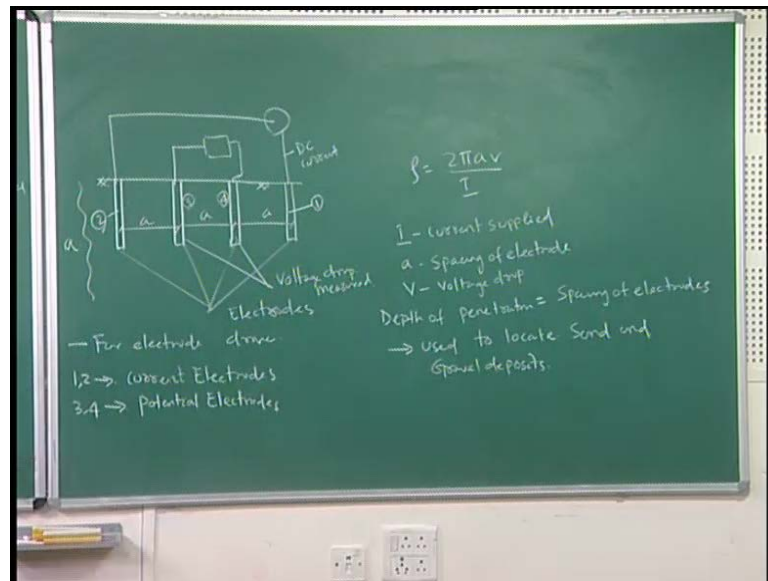 DC
current
② ③ ④ ①
a a a
a
Voltage drop
measured
Electrodes
— Four electrode drove
1,2 → Current Electrodes
3,4 → Potential Electrodes
ρ = 2πav / I
I - current supplied
a - Spacing of electrode
V - Voltage drop
Depth of penetration = Spacing of electrodes
→ used to locate Sand and
Gravel deposits.